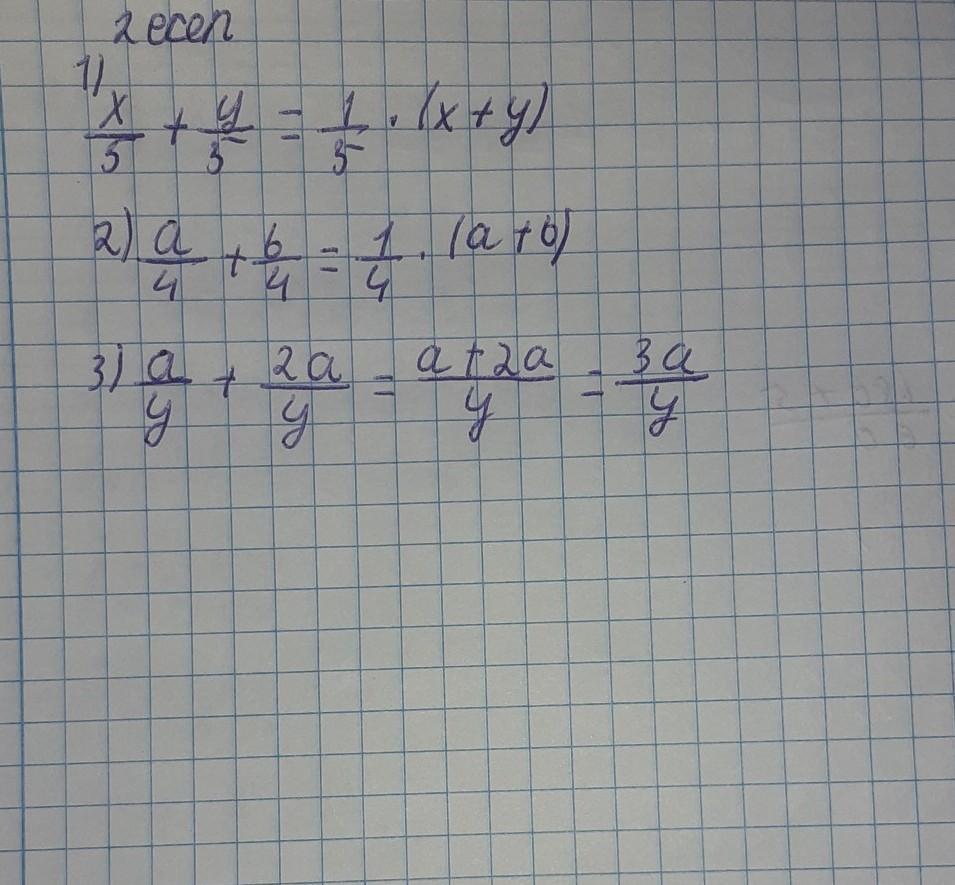 2 есеп
1)
x/5 + y/5 = 1/5 · (x + y)
2) a/4 + b/4 = 1/4 · (a + b)
3) a/y + 2a/y = a + 2a/y = 3a/y